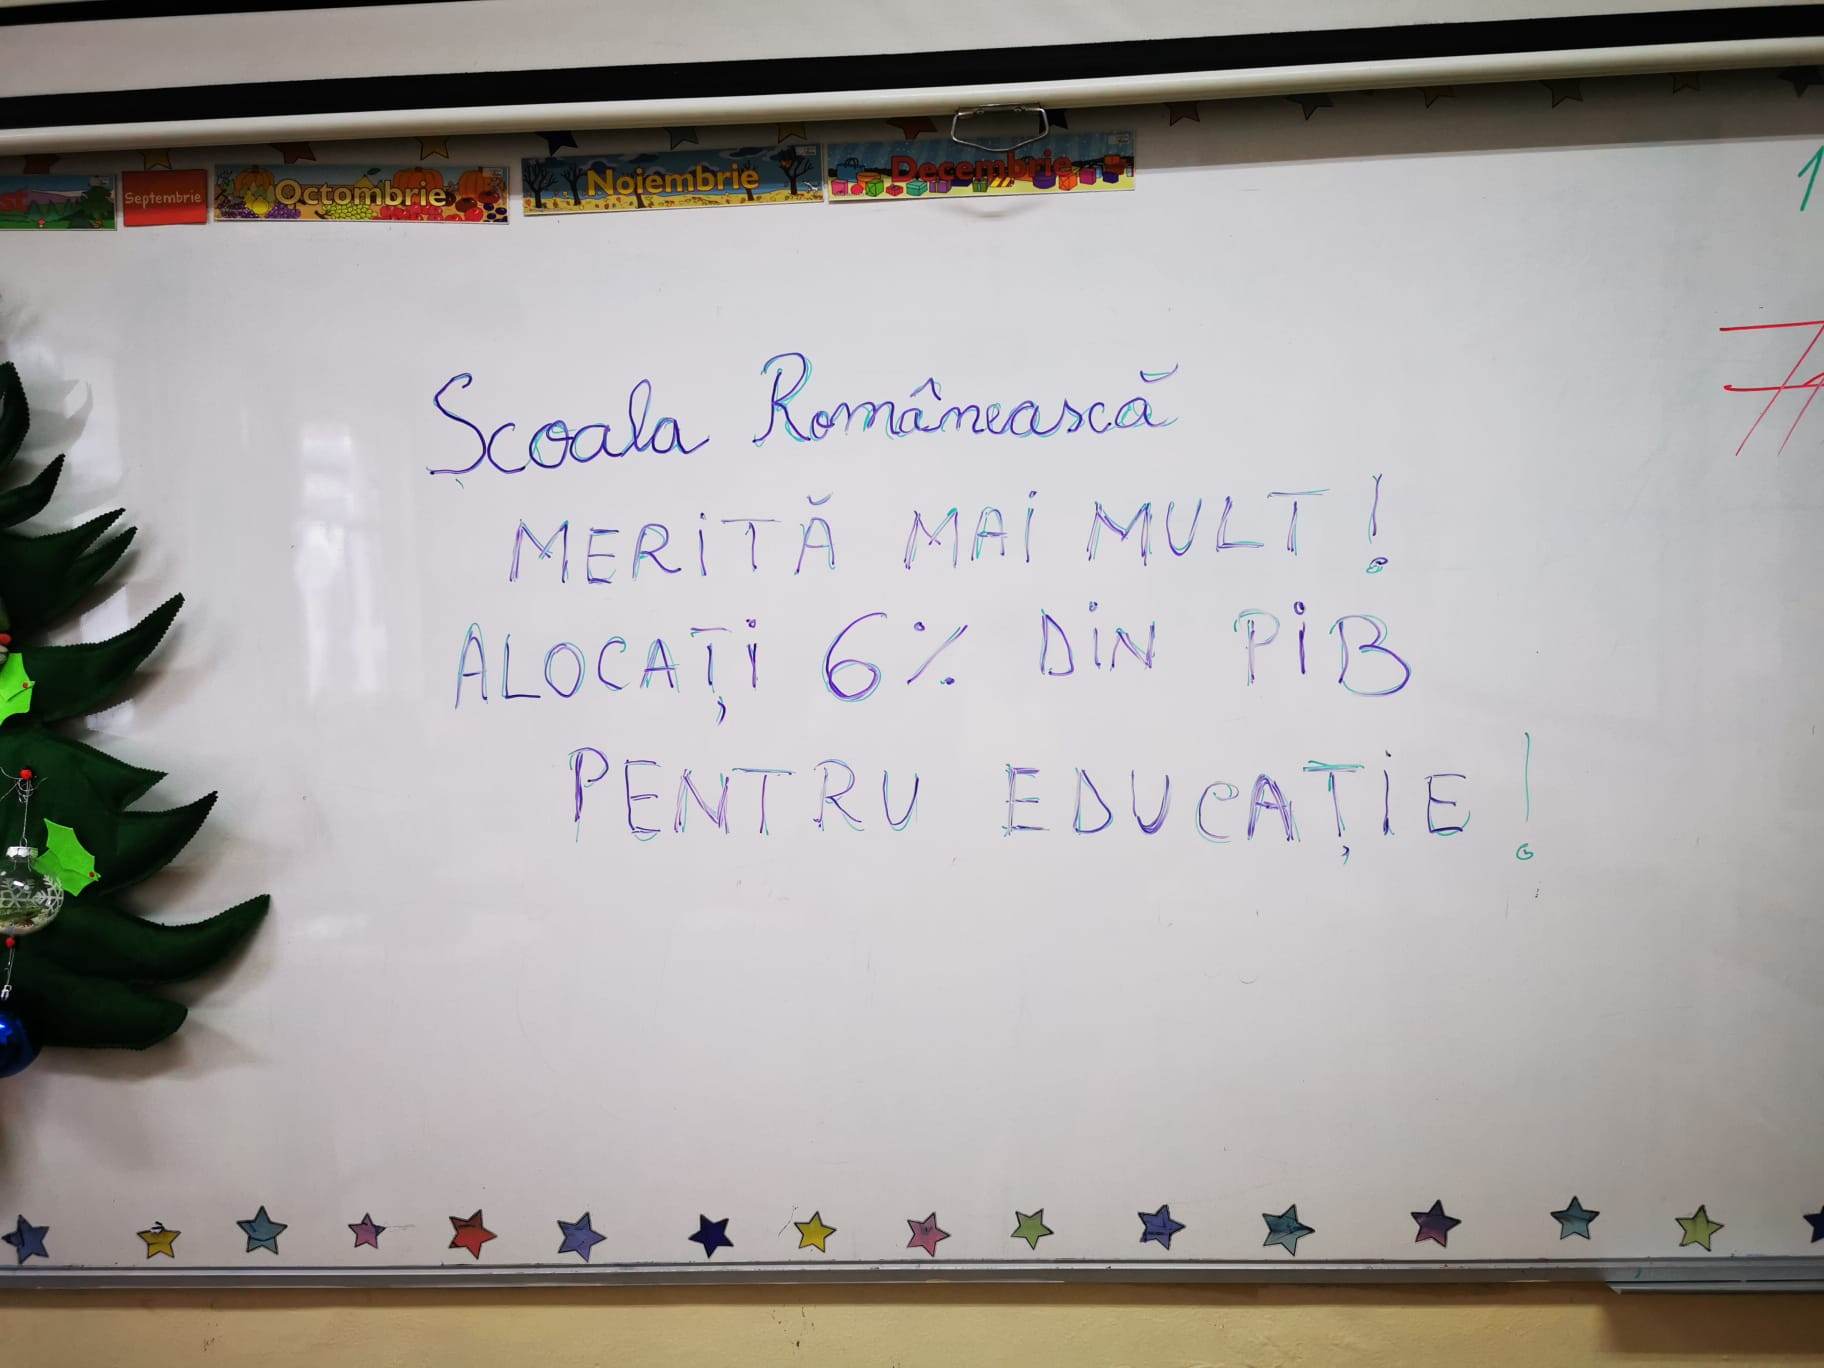 Septembrie Octombrie Noiembrie Decembrie
1
Școala Românească
MERITĂ MAI MULT!
ALOCAȚI 6% DIN PIB
PENTRU EDUCAȚIE!